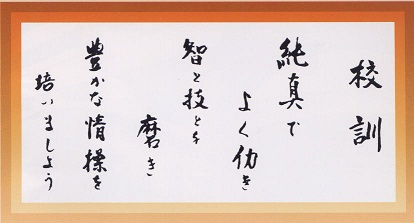 校訓
純真で
よく仂き
智と技とを
磨き
豊かな情操を
培いましよう